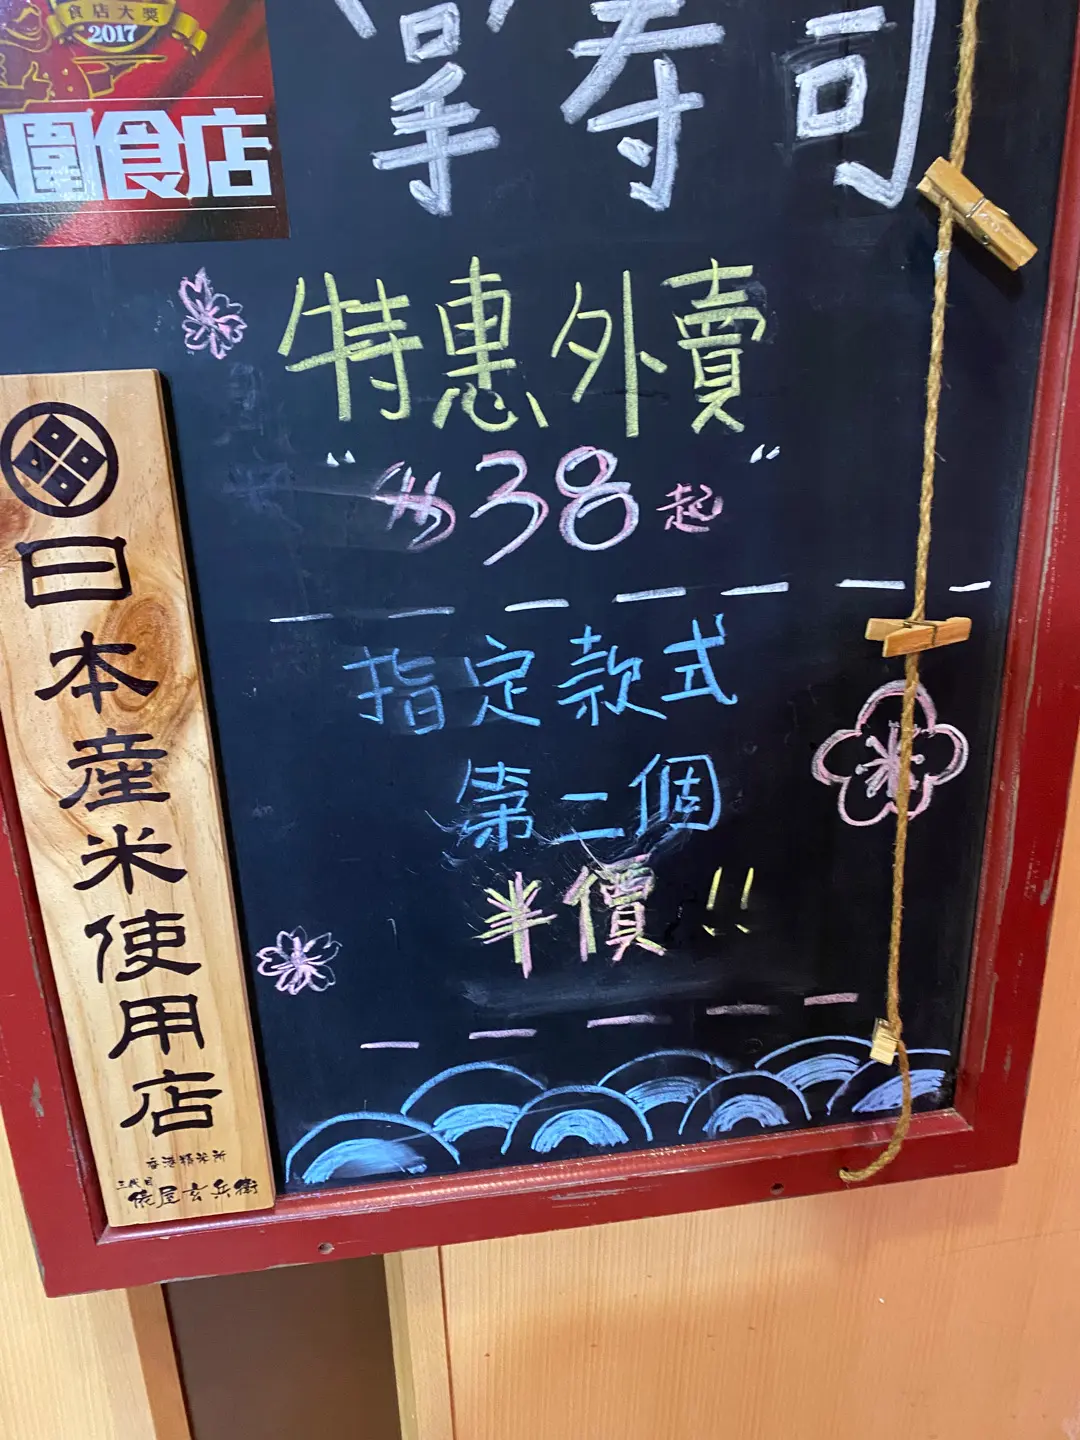 食店大獎
2017
圍食店
壽司
特惠外賣
"$38起"
指定款式
第二個
半價!!
日本産米使用店
香港精米所
三代目
俵屋玄兵衛